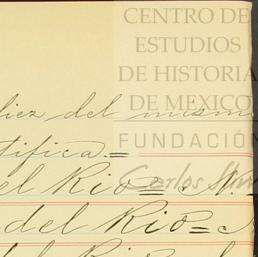 CENTRO DE
ESTUDIOS
DE HISTORIA
DE MEXICO
FUNDACIÓN
Carlos Slim
diez del mismo
tifica.=
el Rio= N.
del Rio=